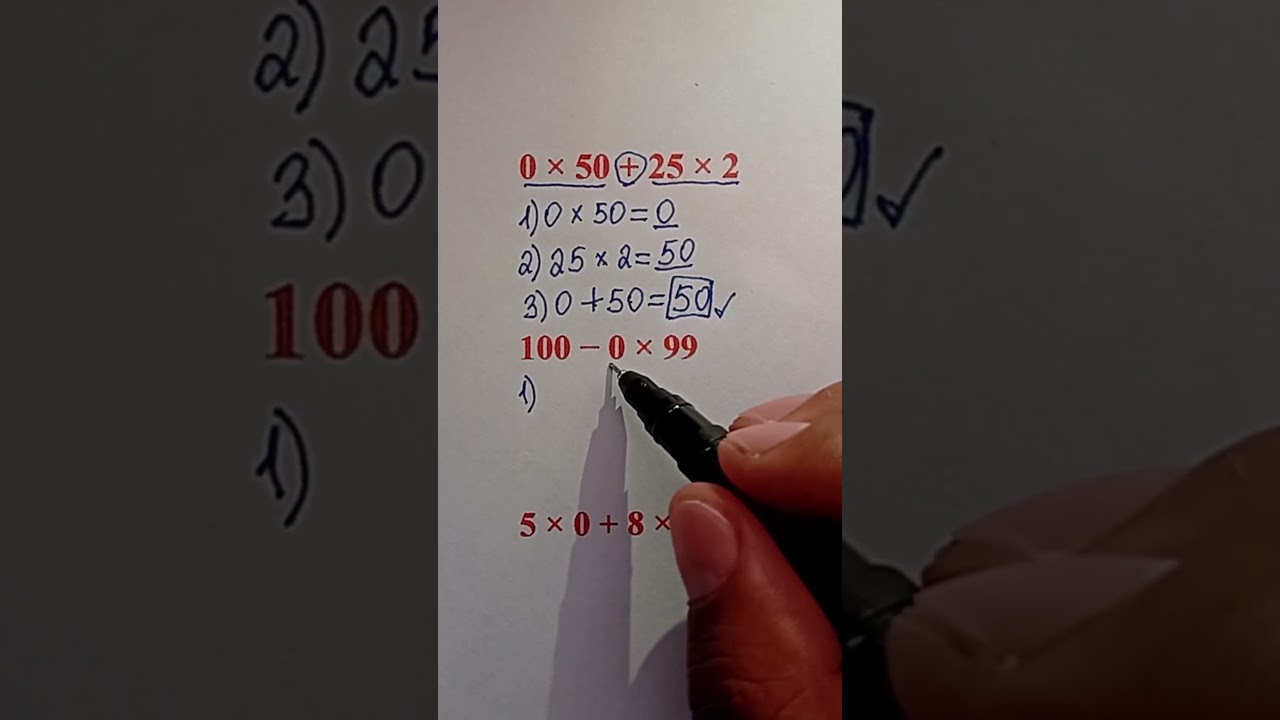 0 × 50 + 25 × 2
1) 0 × 50 = 0
2) 25 × 2 = 50
3) 0 + 50 = 50 ✓
100 − 0 × 99
1)
5 × 0 + 8 ×